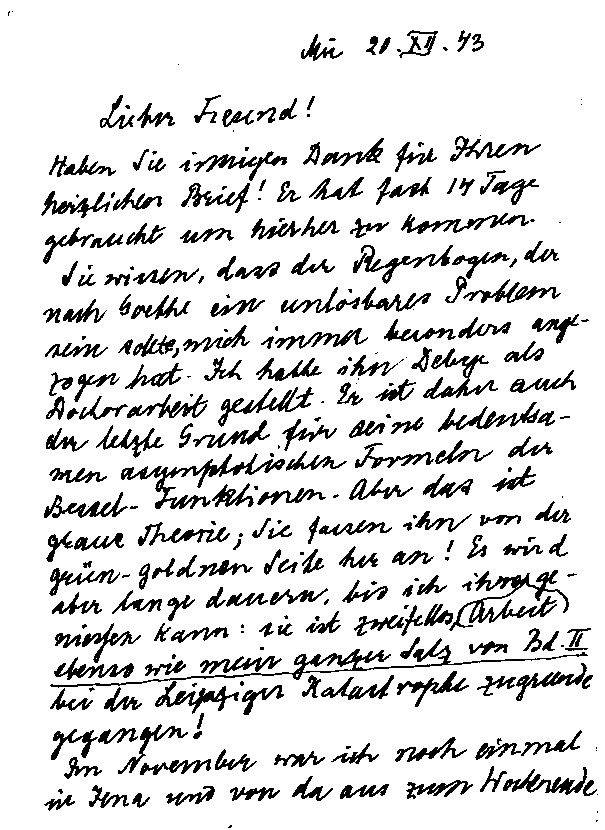 Mü 20.XII.43
Lieber Freund!
Haben Sie innigen Dank für Ihren
herzlichen Brief! Er hat fast 14 Tage
gebraucht um hierher zu kommen.
Sie wissen, dass der Regenbogen, der
nach Goethe ein unlösbares Problem
sein sollte, mich immer besonders ange-
zogen hat. Ich hatte ihn Debye als
Doctorarbeit gestellt. Er ist daher auch
der letzte Grund für seine bedeutsa-
men asymptotischen Formeln der
Bessel-Funktionen. Aber das ist
graue Theorie; Sie fassen ihn von der
grün-goldnen Seite her an! Es wird
aber lange dauern, bis ich ihn ge-
niessen kann: sie ist zweifellos (Arbeit)
ebenso wie mein ganzer Satz von Bd. II
bei der Leipziger Katastrophe zugrunde
gegangen!
Im November war ich noch einmal
in Jena und von da aus zum Wochenende